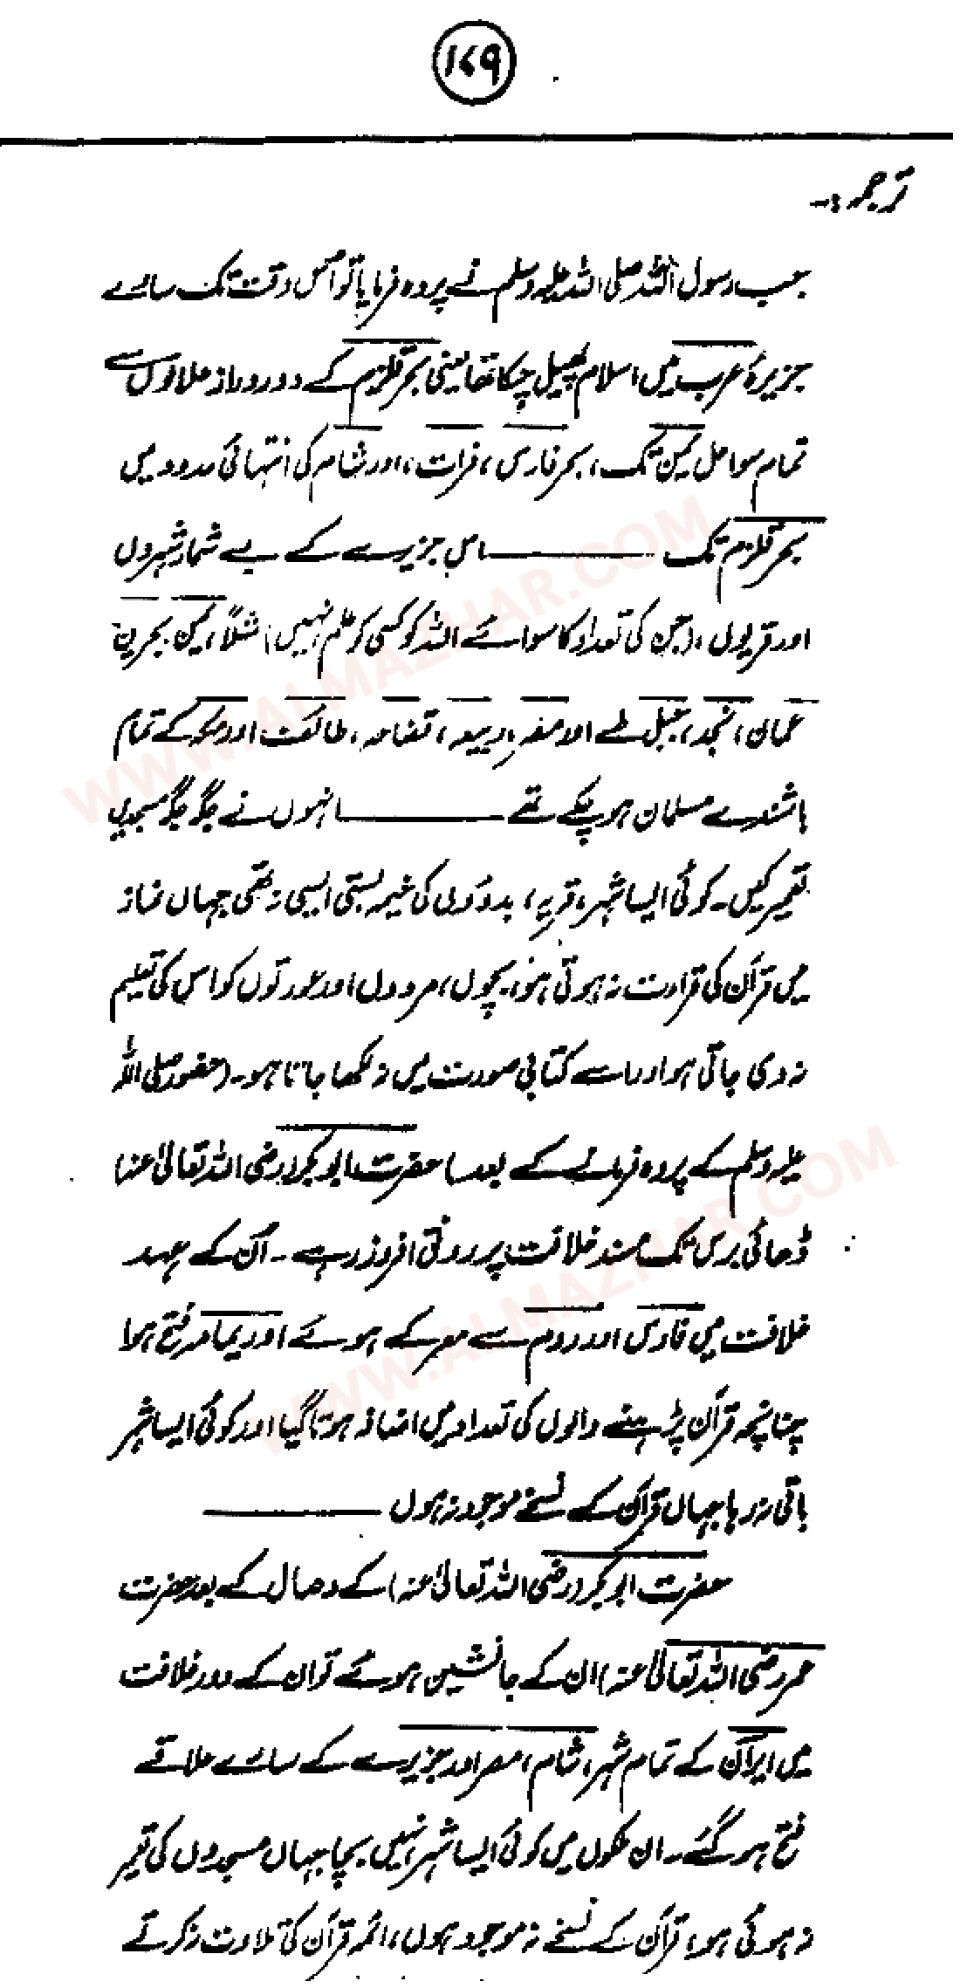 ۱۷۹
ترجمہ :-
جب رسول اللہ صلی اللہ علیہ وسلم نے پردہ فرمایا تو اُس وقت تک سارے
جزیرۂ عرب میں اسلام پھیل چکا تھا یعنی بحر قلزم کے دور دراز علاقوں سے
تمام سواحل یمن تک، بحر فارس، فرات، اور شام کی انتہائی حدود میں
بحر قلزم تک ——— اس جزیرے کے بے شمار شہروں
اور قریوں، (جن کی تعداد کا سوائے اللہ کو کسی کو علم نہیں) مثلاً یمن، بحرین
عمان، نجد، جبل طے اور مضر، ربیعہ، قضاعہ، طائف اور مکہ کے تمام
باشندے مسلمان ہو چکے تھے ——— انہوں نے جگہ جگہ مسجدیں
تعمیر کیں۔ کوئی ایسا شہر، قریہ، بدوؤں کی خیمہ بستی ایسی نہ تھی جہاں نماز
میں قرآن کی قرارت نہ ہوتی ہو، بچوں، مردوں اور عورتوں کو اس کی تعلیم
نہ دی جاتی ہو اور اسے کتابی صورت میں نہ لکھا جاتا ہو۔ (حضور صلی اللہ
علیہ وسلم کے پردہ فرمانے کے بعد) حضرت ابوبکر (رضی اللہ تعالیٰ عنہ)
ڈھائی برس تک مسند خلافت پر رونق افروز رہے۔ اُن کے عہد
خلافت میں فارس اور روم سے معرکے ہوئے اور یمامہ فتح ہوا
چنانچہ قرآن پڑھنے والوں کی تعداد میں اضافہ ہوتا گیا اور کوئی ایسا شہر
باقی نہ رہا جہاں قرآن کے نسخے موجود نہ ہوں ———
حضرت ابوبکر (رضی اللہ تعالیٰ عنہ) کے وصال کے بعد حضرت
عمر (رضی اللہ تعالیٰ عنہ) ان کے جانشین ہوئے تو ان کے دور خلافت
میں ایران کے تمام شہر، شام، مصر اور جزیرے کے سارے علاقے
فتح ہو گئے۔ ان ملکوں میں کوئی ایسا شہر نہیں بچا جہاں مسجدوں کی تعمیر
نہ ہوئی ہو، قرآن کے نسخے نہ موجود ہوں، ائمہ قرآن کی تلاوت نہ کرتے
WWW.ALMAZHAR.COM
WWW.ALMAZHAR.COM